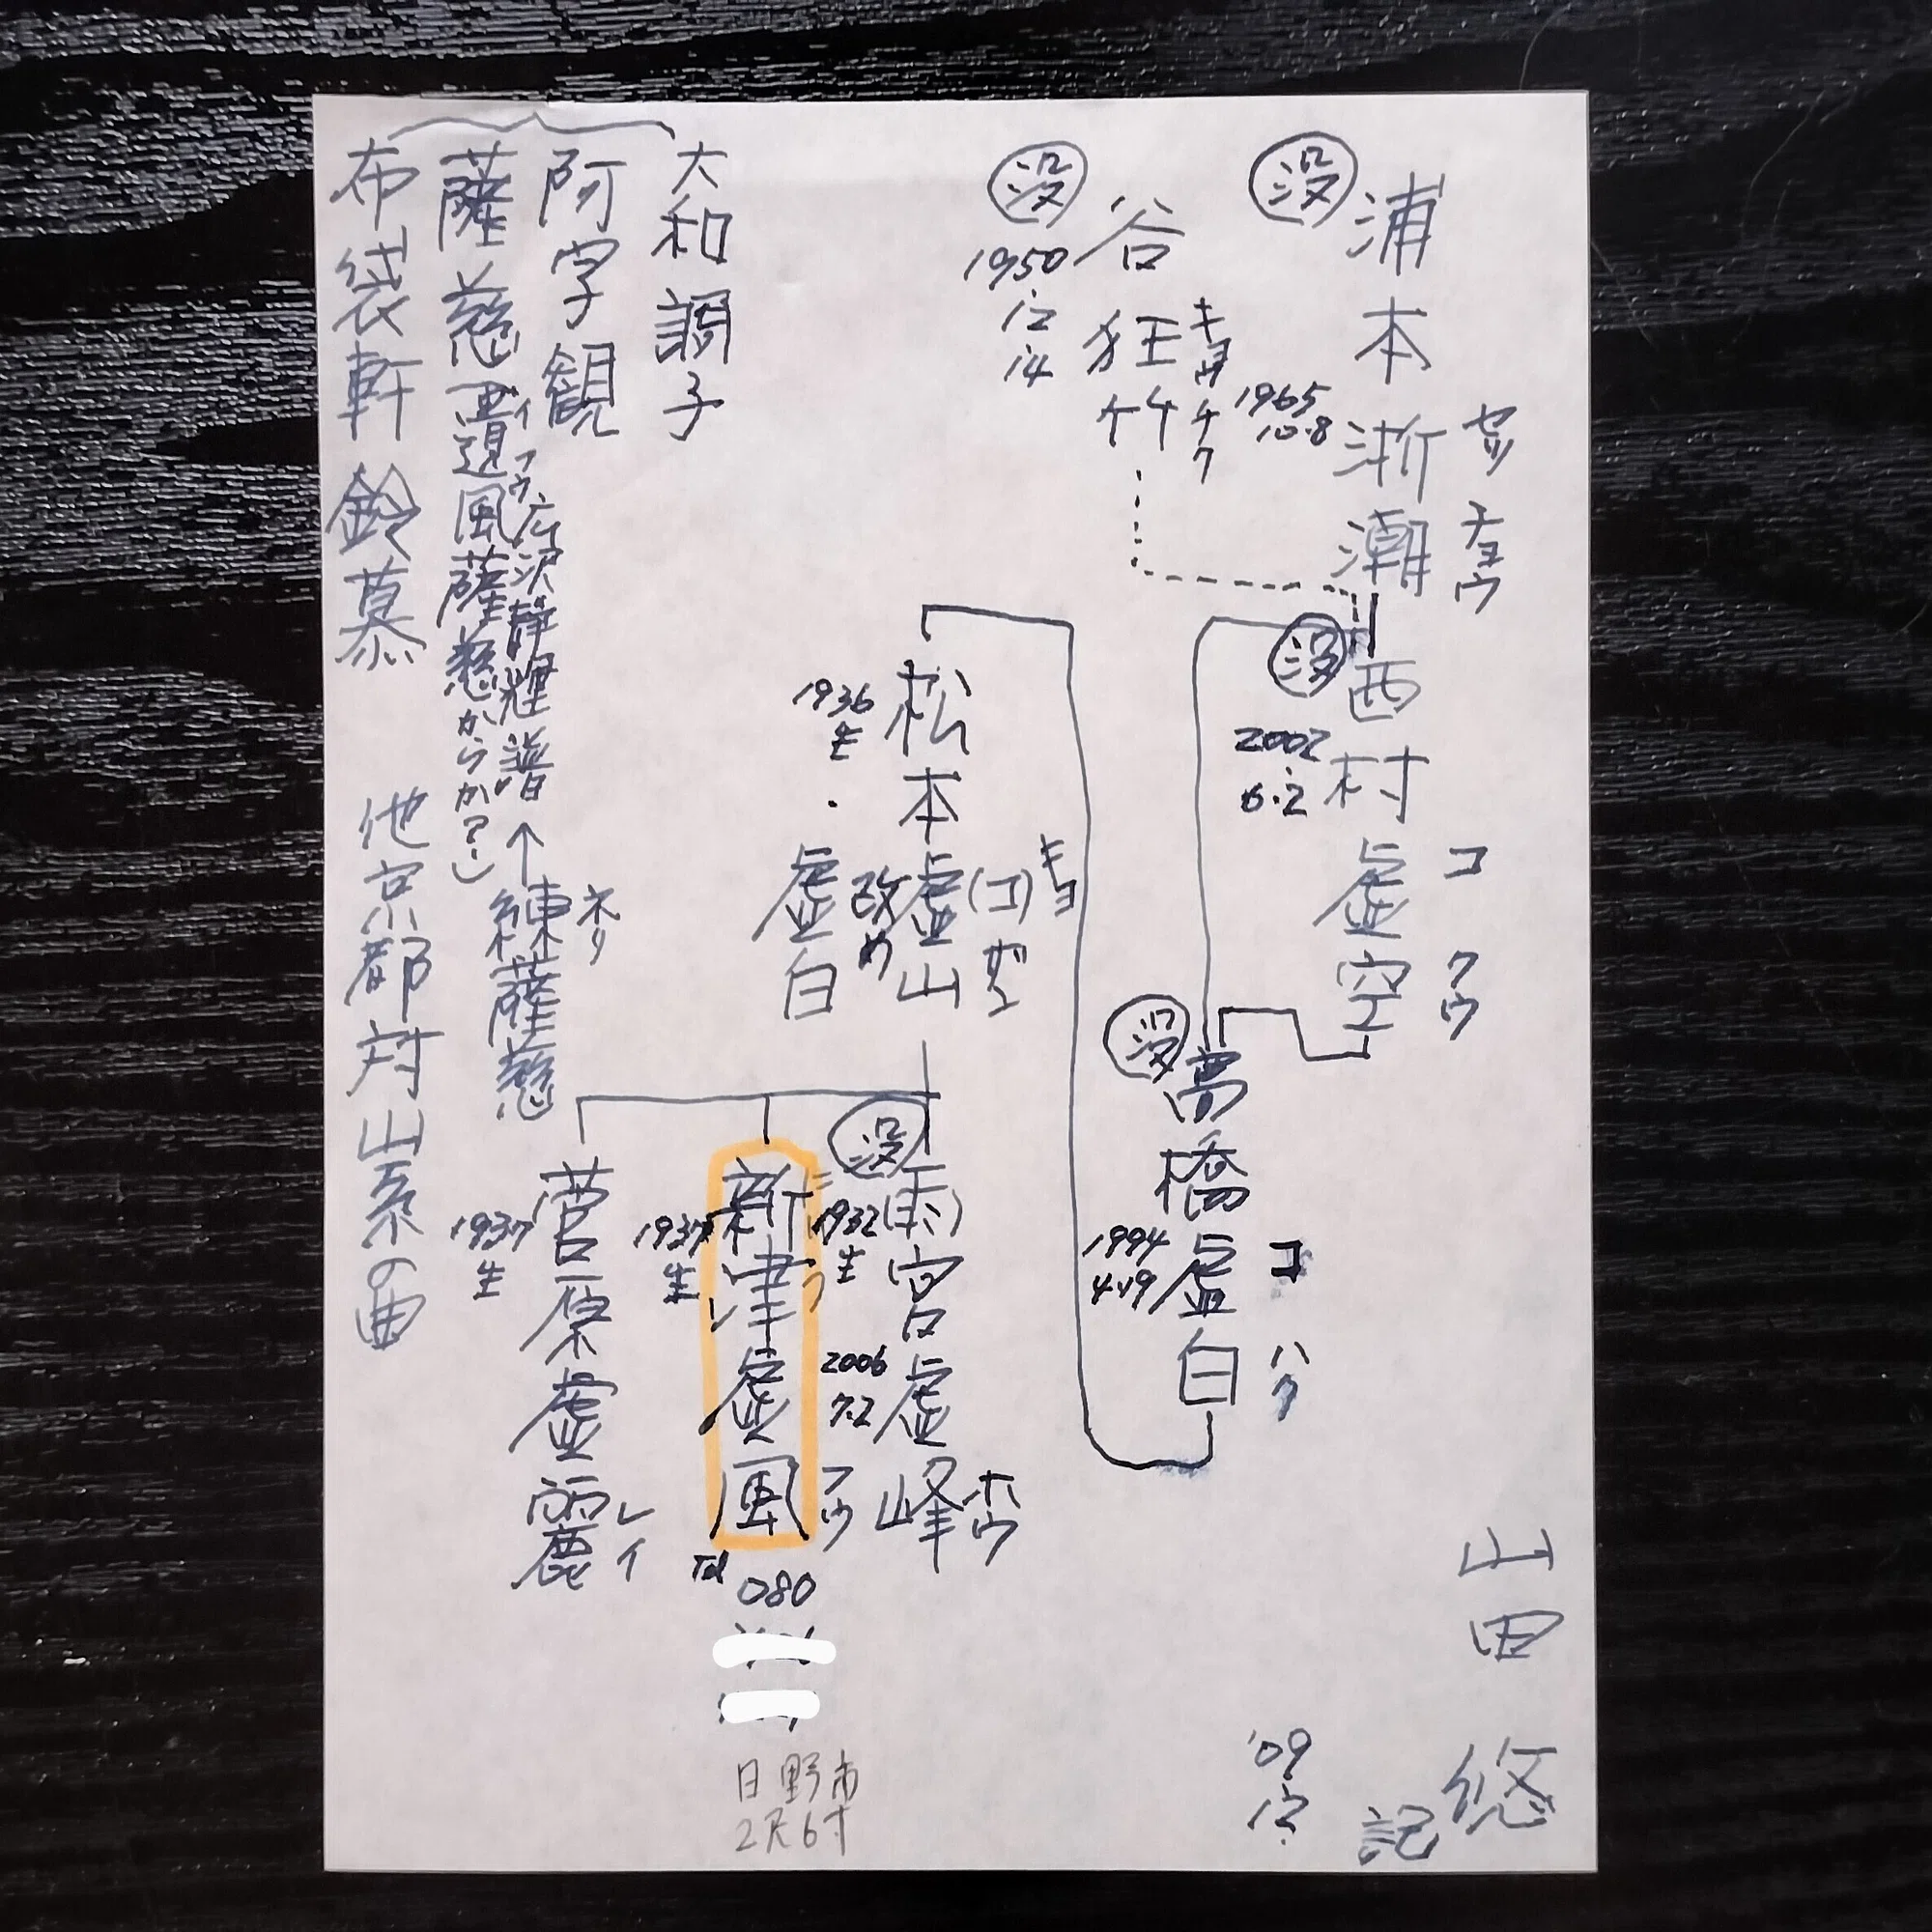 浦本浙潮
セッ チョウ
没
1965
10.8
谷狂竹
キョウ チク
没
1950
12
14
西村虚空
コ クウ
没
2002
6.2
高橋虚白
コ ハク
没
1994
4.19
松本虚山
キョ
(コ) ザン
改め
虚白
1936
生
雨宮虚峰
ホウ
没
1932
生
2006
7.2
新津虚風
ニ
フウ
1937
生
Tel
080
日野市
2尺6寸
菅原虚麗
レイ
1937
生
大和調子
阿字観
薩慈
遺風薩慈からか?)
イ フウ
広沢静輝譜
↑
練薩慈
ネリ
布袋軒鈴慕
他京都対山系の曲
山田悠
記
'09
12